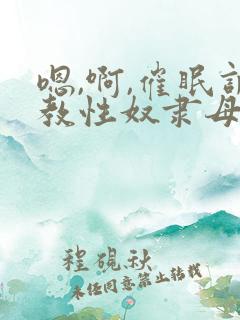 嗯,啊,催眠
教性奴隶母
程砚秋
未经同意禁止转载